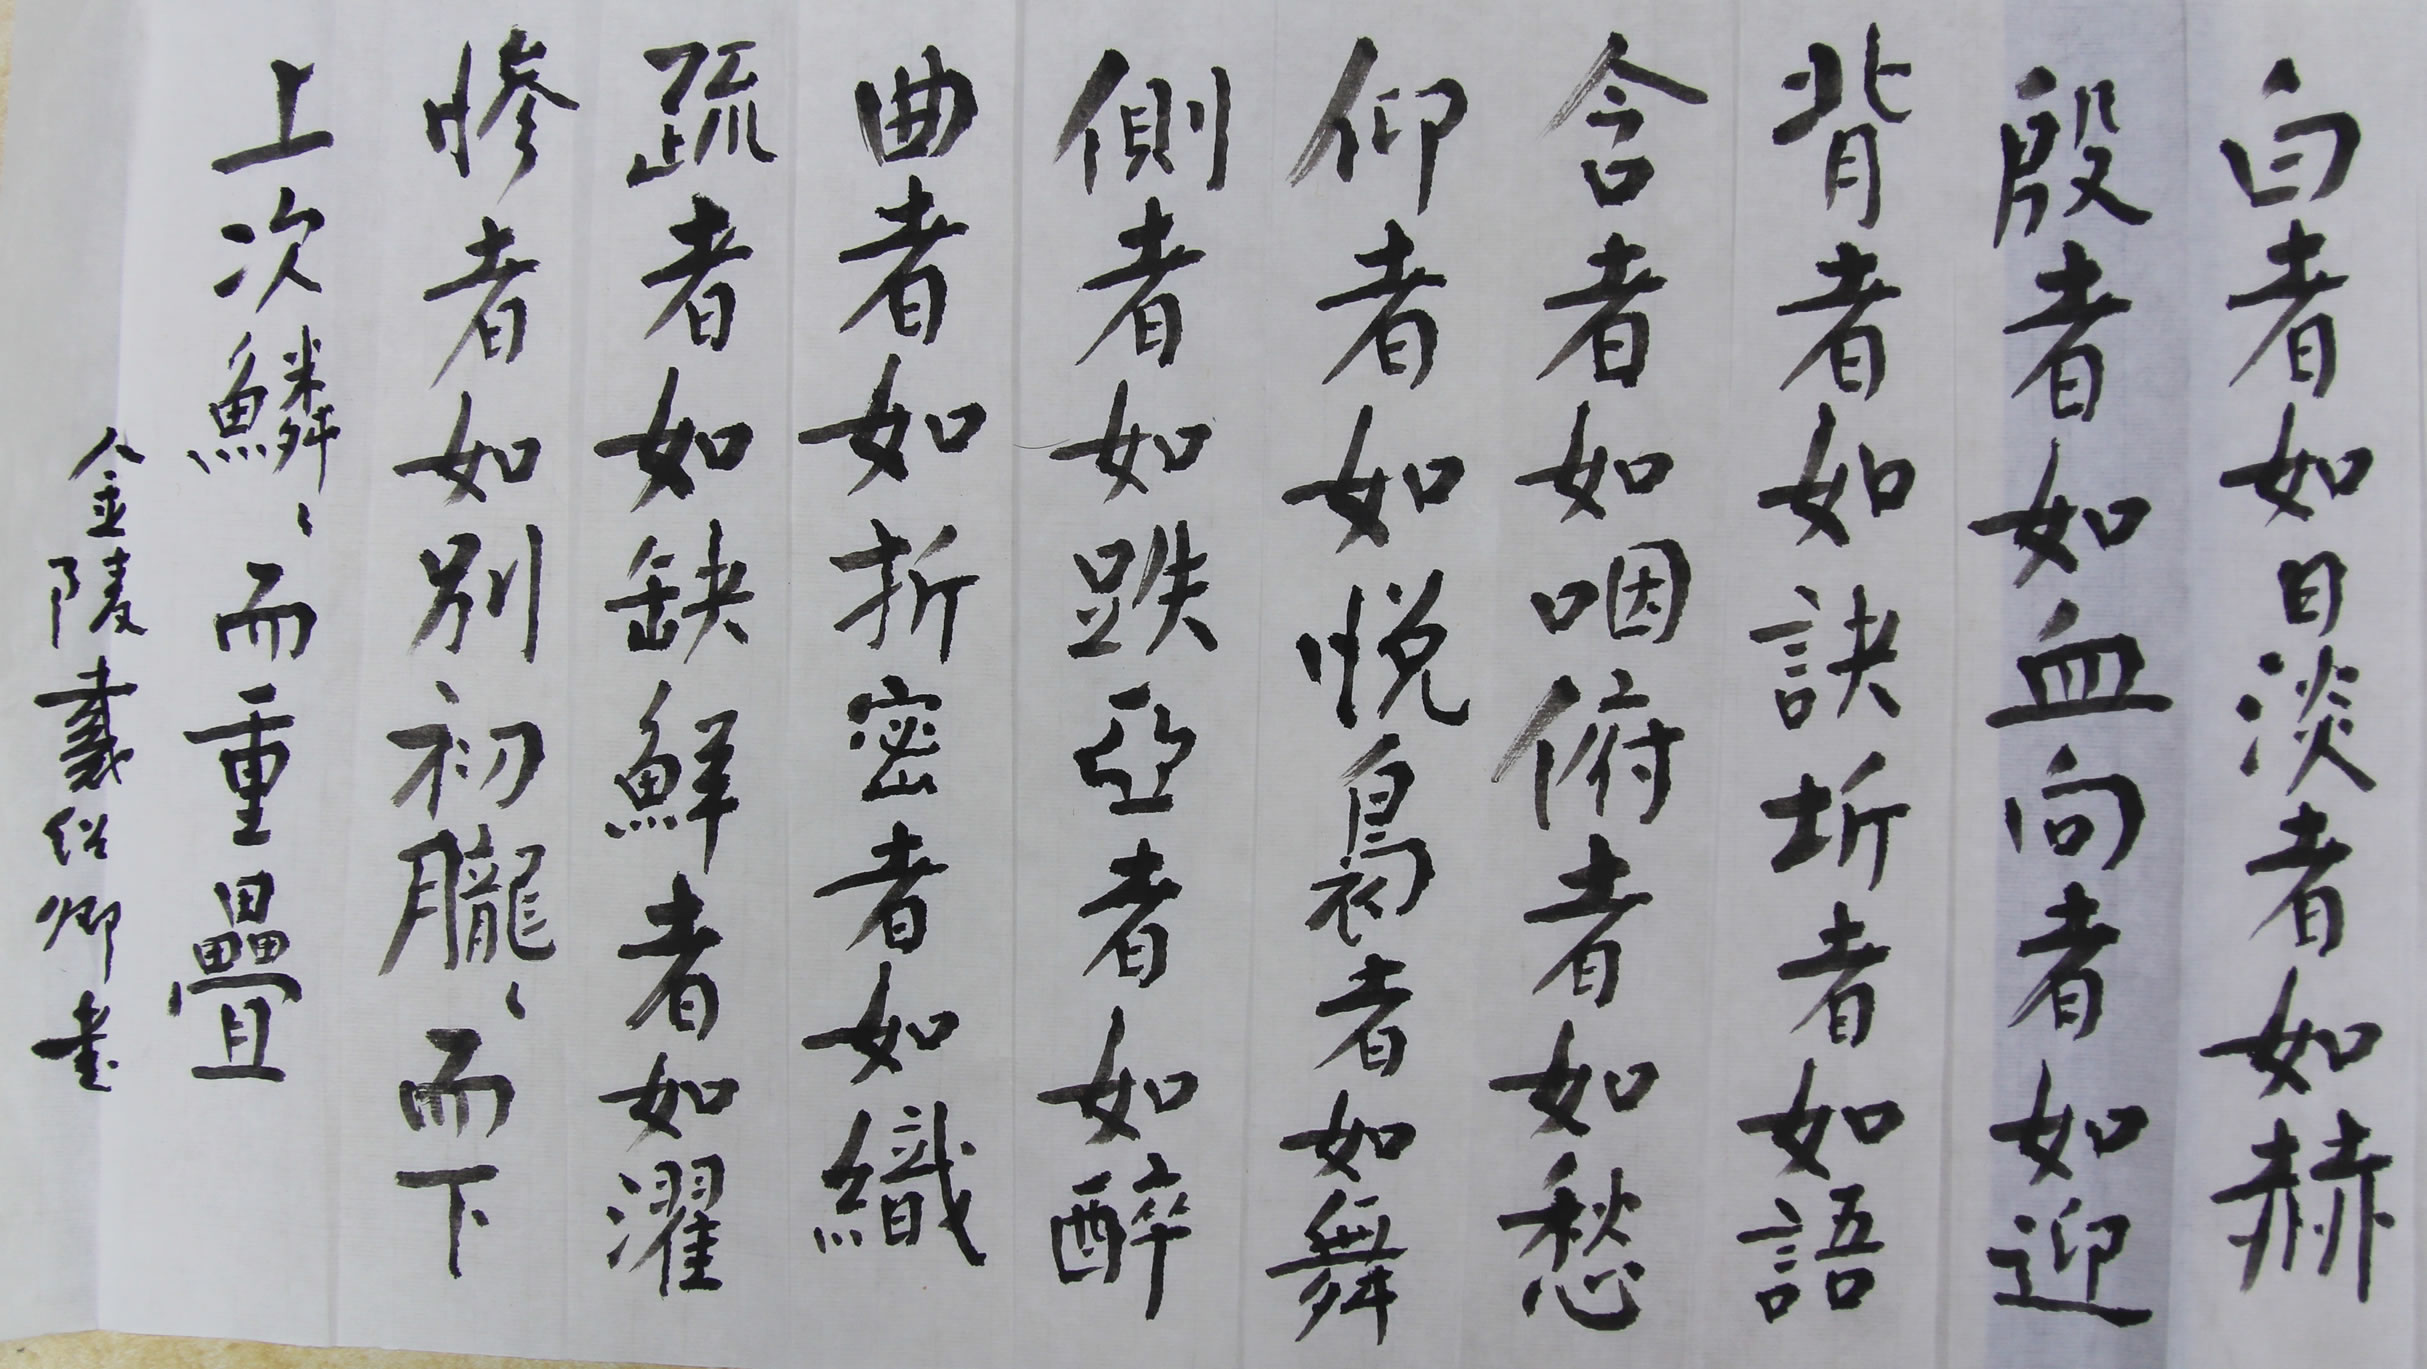 白者如日淡者如赫
殷者如血向者如迎
背者如訣坼者如語
含者如咽俯者如愁
仰者如悦裊者如舞
側者如跌亞者如醉
曲者如折密者如織
疏者如缺鮮者如濯
惨者如別初朧、而下
上次鱗、而重疊
金陵戴绍卿書